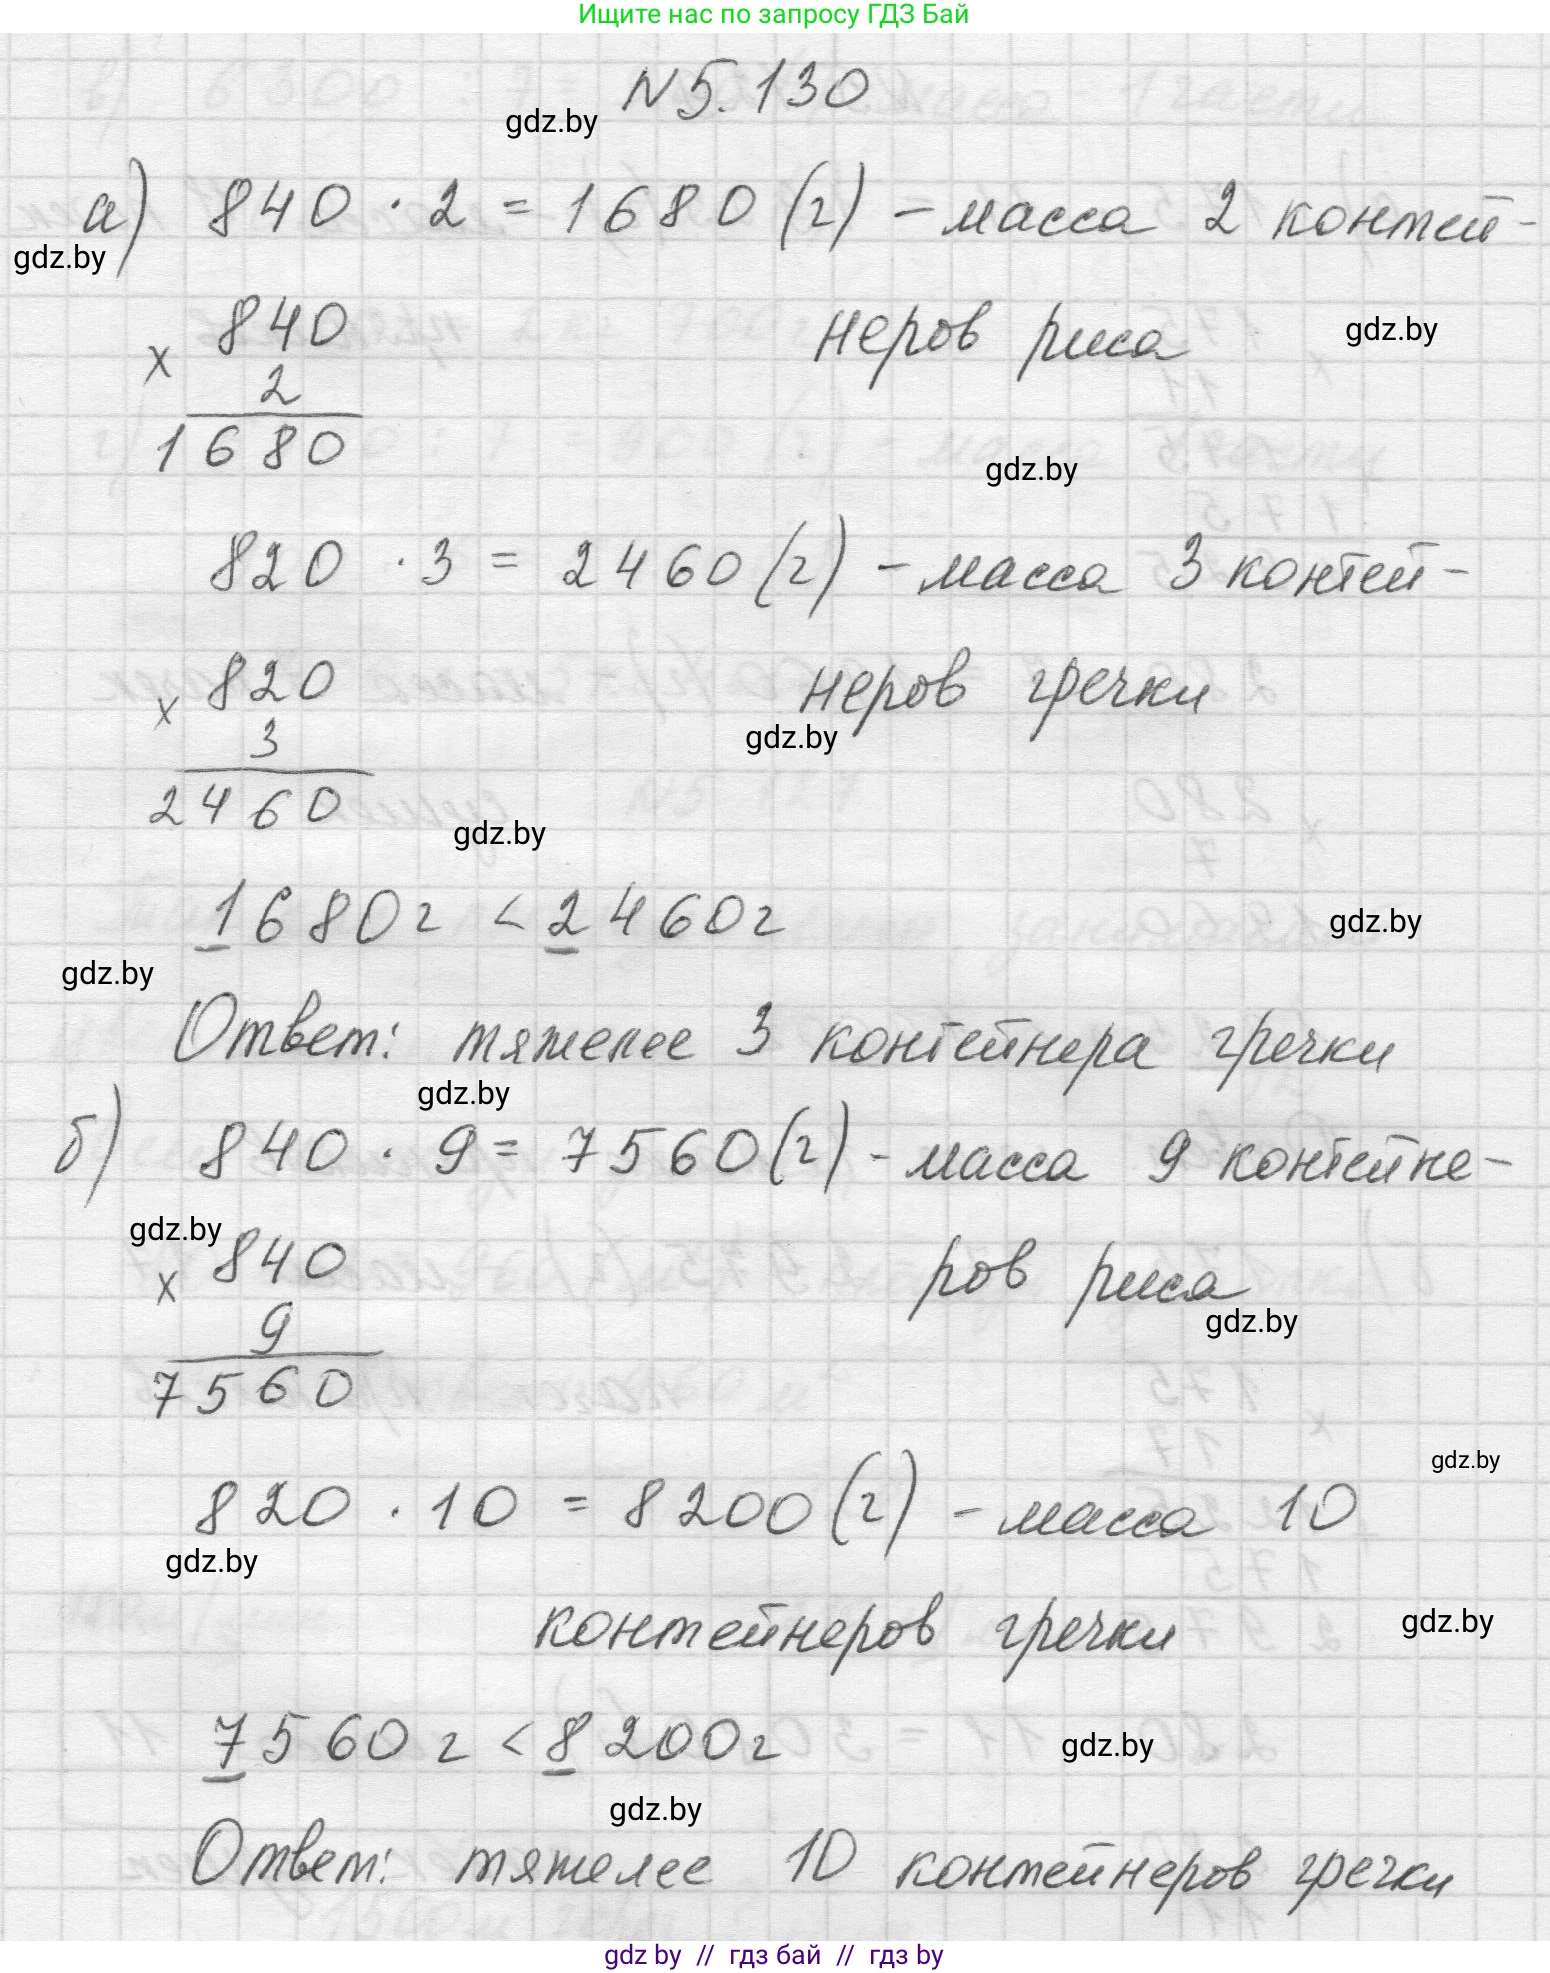 Ищите нас по запросу ГДЗ Бай
N 5.130
gdz.by
а) 840 · 2 = 1680 (г) – масса 2 контей-
gdz.by
840
неров риса
gdz.by
x
2
1680
gdz.by
820 · 3 = 2460 (г) – масса 3 контей-
820
неров гречки
x
3
gdz.by
2460
gdz.by
1680г < 2460г
gdz.by
gdz.by
Ответ: тяжелее 3 контейнера гречки
gdz.by
б) 840 · 9 = 7560 (г) - масса 9 контейне-
gdz.by
840
ров риса
x
9
gdz.by
7560
gdz.by
820 · 10 = 8200 (г) – масса 10
gdz.by
контейнеров гречки
gdz.by
7560г < 8200г
gdz.by
gdz.by
Ответ: тяжелее 10 контейнеров гречки
gdz by // гдз бай // гдз by